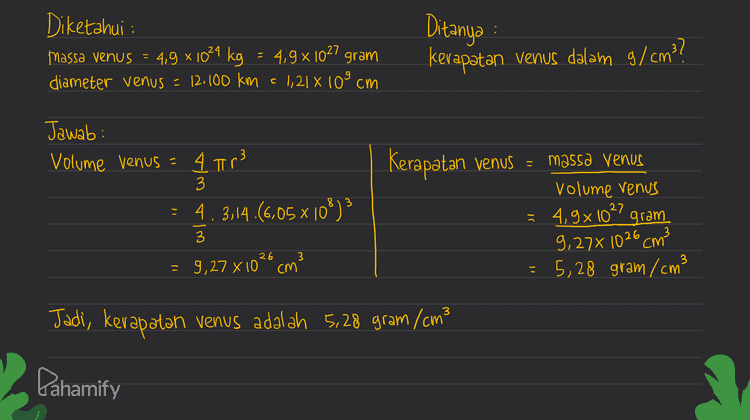 Diketahui :
massa venus = 4,9 x 10²⁴ kg = 4,9 x 10²⁷ gram
diameter venus = 12.100 km = 1,21 x 10⁹ cm
Ditanya :
kerapatan venus dalam g/cm³?
Jawab :
Volume venus = 4/3 πr³
= 4/3 . 3,14 .(6,05 x 10⁸)³
= 9,27 x 10²⁶ cm³
Kerapatan venus = massa venus / volume venus
= 4,9x 10²⁷ gram / 9,27x 10²⁶ cm³
= 5,28 gram/cm³
Jadi, kerapatan venus adalah 5,28 gram/cm³
Pahamify